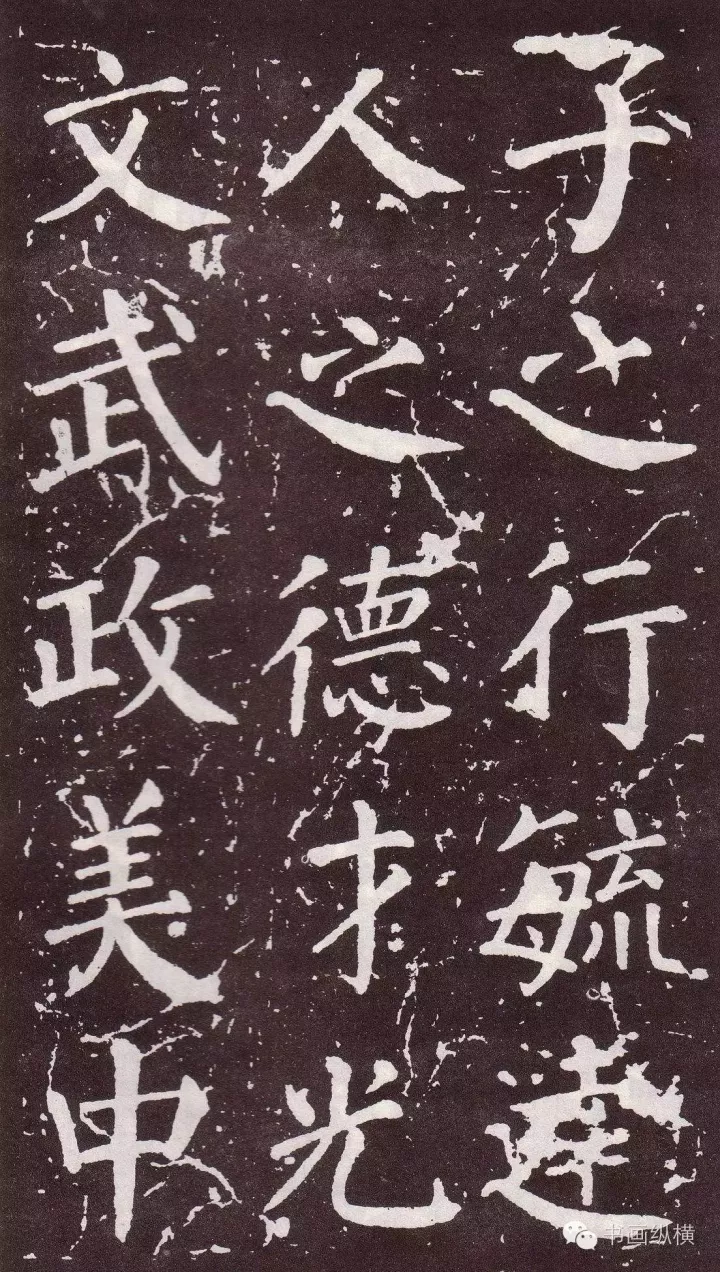 子之行毓達
人之德才光
文武政美中
书画纵横